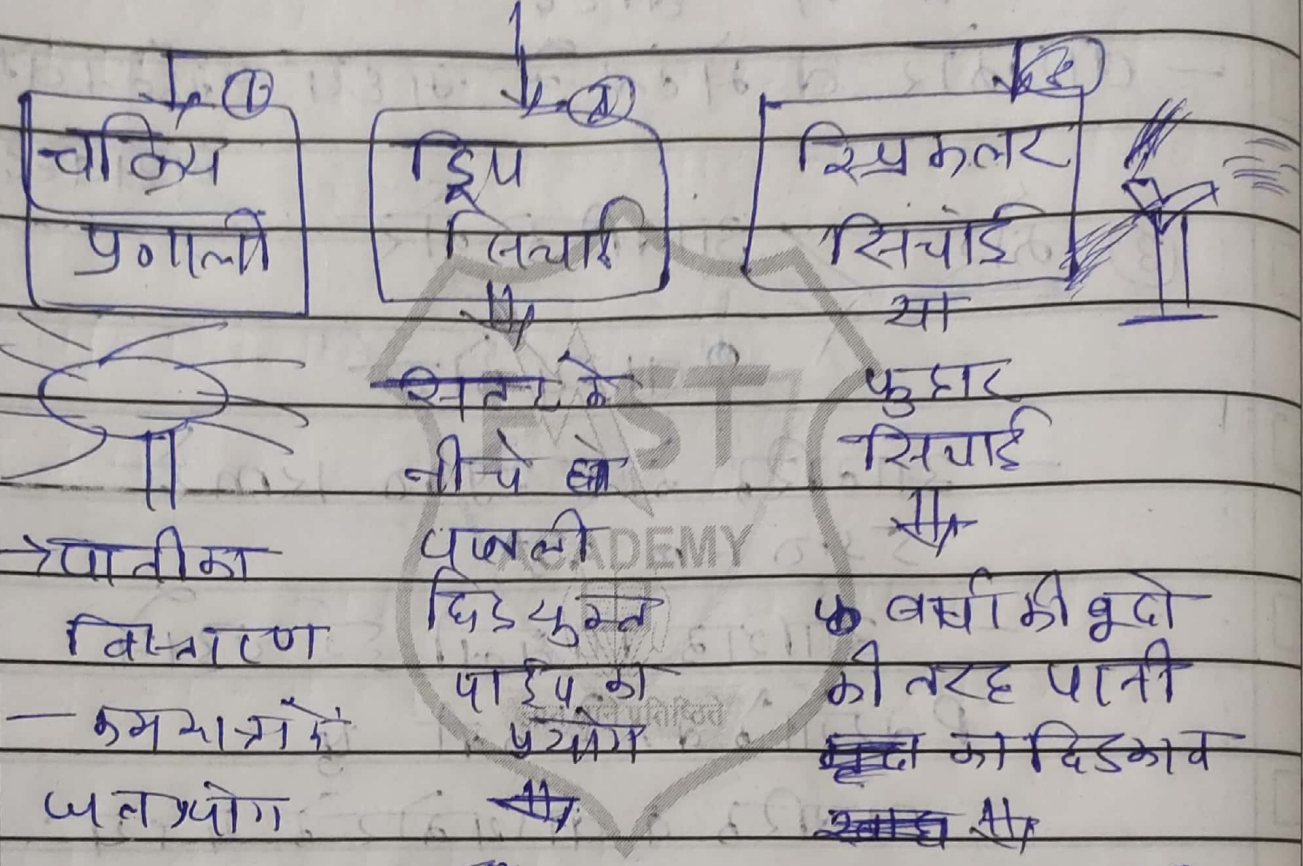 ①
चक्रिय
प्रणाली
→पानी का
वितरण
— कम मात्रा में
जल प्रयोग
②
ड्रिप
सिंचाई
सतह के
नीचे
पतली
छिद्रयुक्त
पाईप का
प्रयोग
③
स्प्रिकलर
सिंचाई
या
फुहार
सिंचाई
वर्षा की बूदो
की तरह पानी
का छिडकाव
FAST
ACADEMY